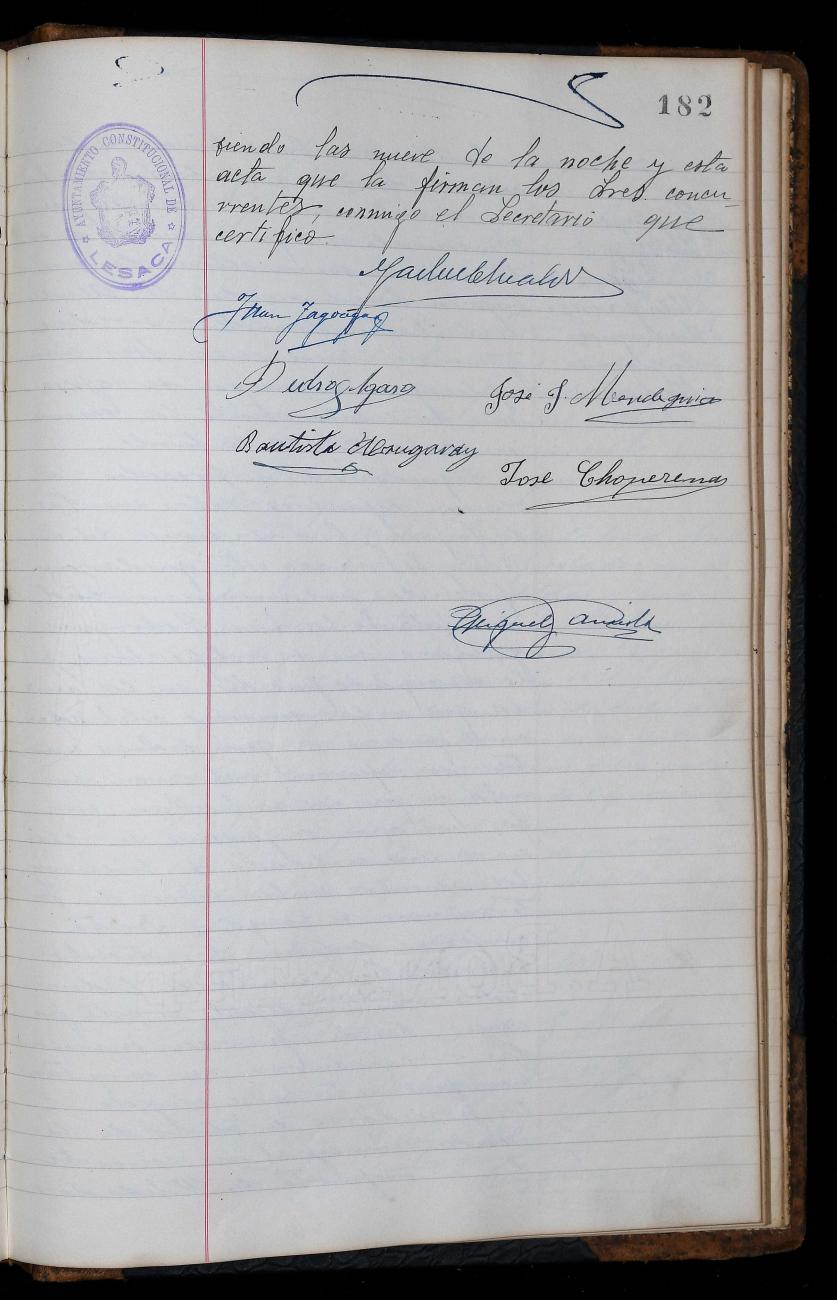 182
AYUNTAMIENTO CONSTITUCIONAL DE
LESACA
siendo las nueve de la noche y esta
acta que la firman los Sres. concu-
rrentes, conmigo el Secretario que
certifico.
Juan
Pedro
José J. Mendeguia
Bautista
Jose Choperena
Miguel